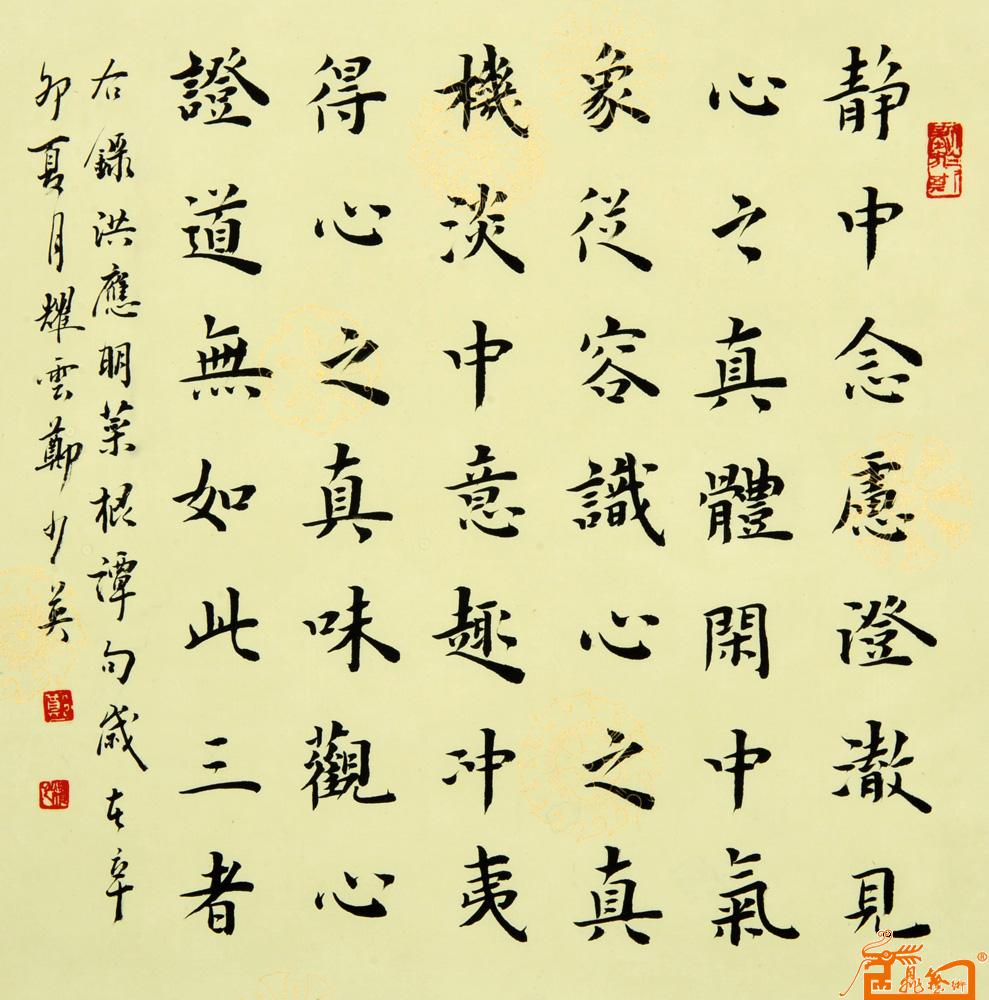 静中念慮澄澈見
心之真體閑中氣
象從容識心之真
機淡中意趣冲夷
得心之真味觀心
證道無如此三者
右錄洪應明菜根譚句歲在辛
卯夏月耀雲鄭少英